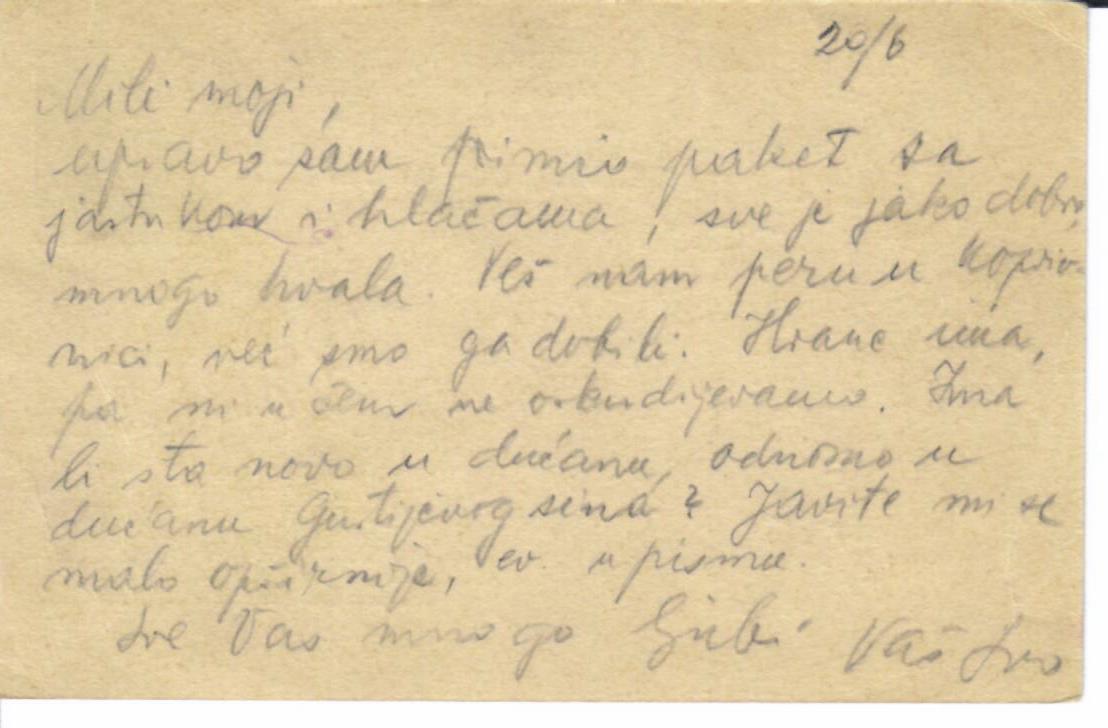 20/6
Mili moji,
upravo sam primio paket sa
jastukom i hlačama, sve je jako dobro,
mnogo hvala. Veš nam peru u Kopriv-
nici, već smo ga dobili. Hrane ima,
pa ni u čem ne oskudijevamo. Ima
li šta novo u dućanu, odnosno u
dućanu Gustijevog sina? Javite mi se
malo opširnije, ev. u pismu.
Sve Vas mnogo ljubi Vaš Ivo